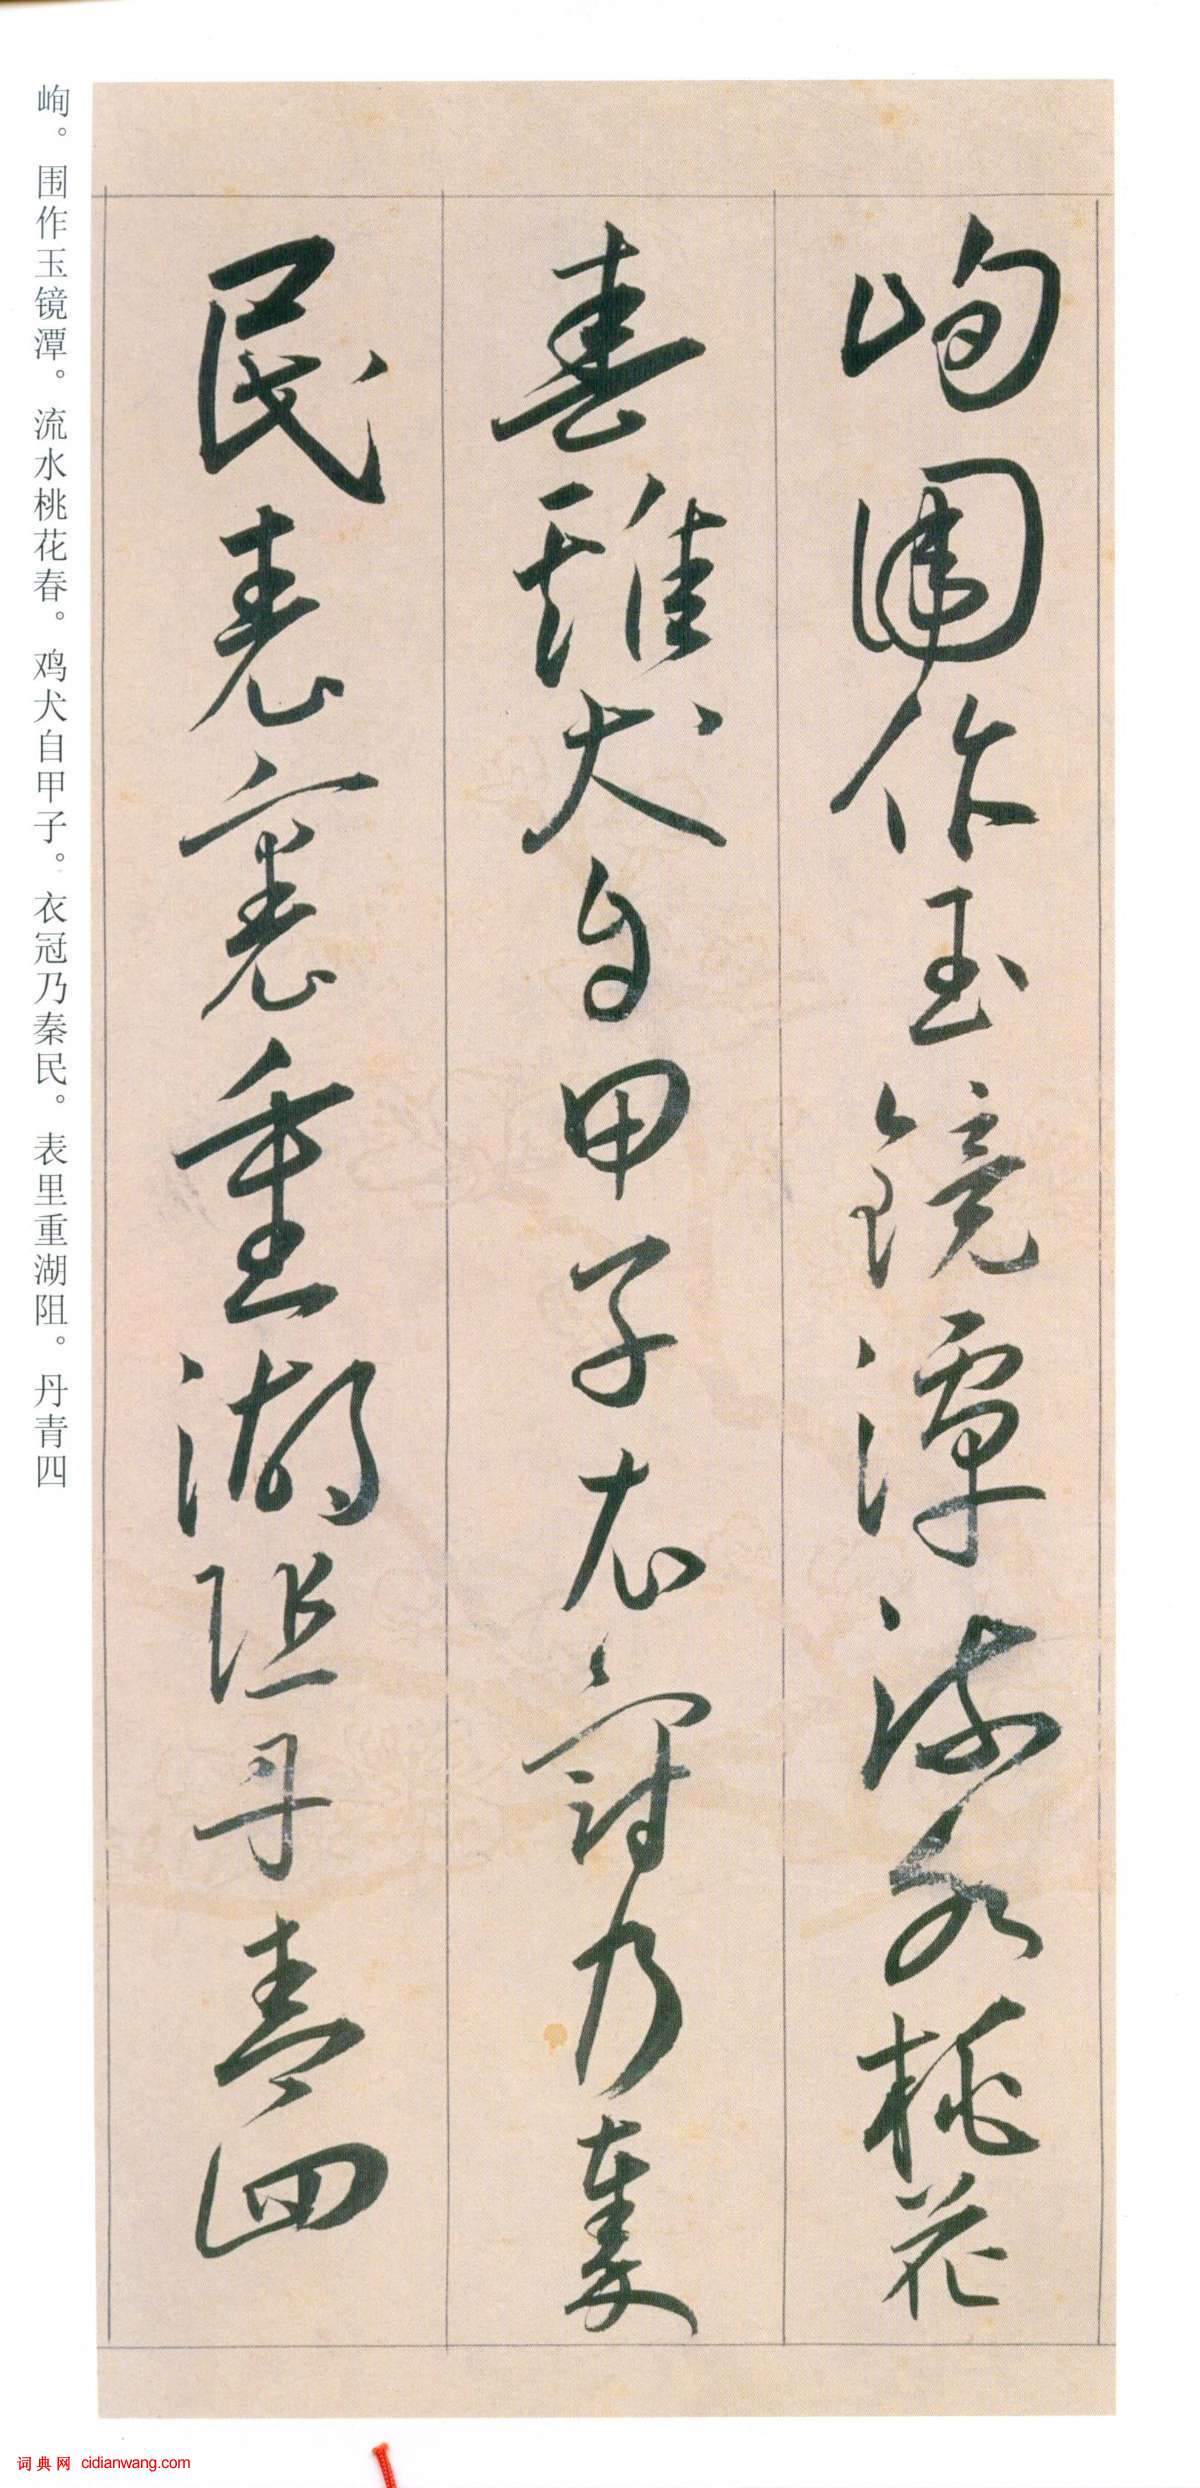 峋围作玉镜潭流水桃花
春雞犬自甲子衣冠乃秦
民表裏重湖阻丹青四
峋。围作玉镜潭。流水桃花春。鸡犬自甲子。衣冠乃秦民。表里重湖阻。丹青四
词典网 cidianwang.com